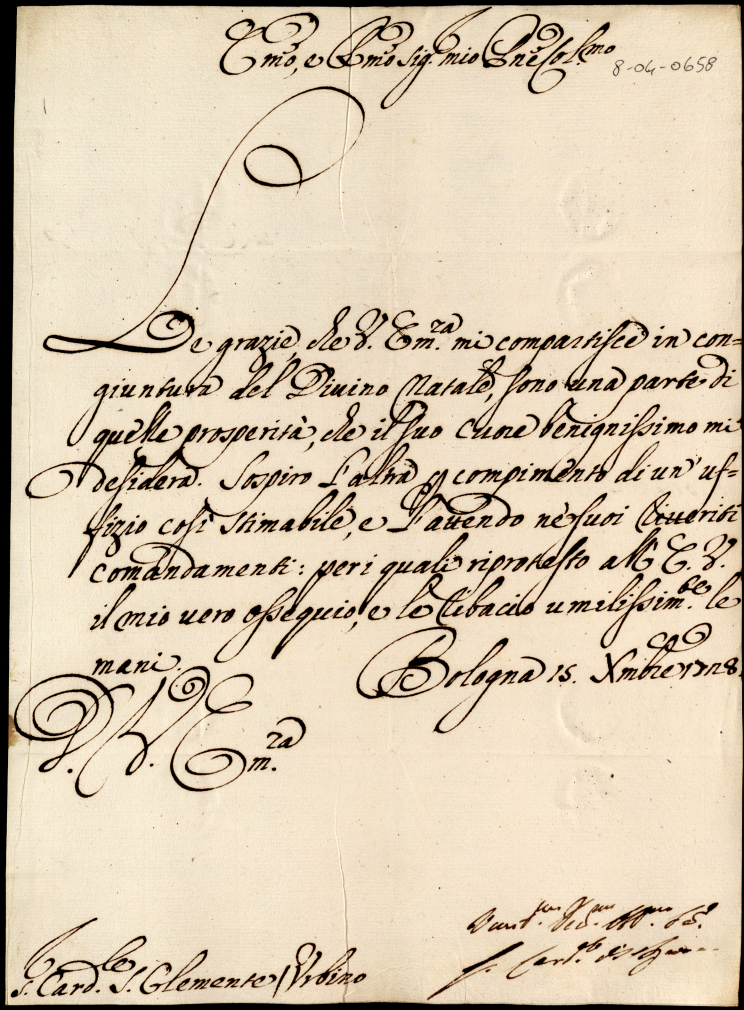 Emo, e Rmo Sig. mio Pne Col.mo
8-04-0658
Le grazie, che V. Em.za mi compartisce in con=
giuntura del Divino Natale, sono una parte di
quelle prosperità, che il suo cuore benignissimo mi
desidera. Sospiro l'altra p compimento di un' uf=
fizio così stimabile, e l'attendo ne' suoi riveriti
comandamenti: per i quali riprotesto all' E. V.
il mio vero ossequio, e le ribacio umilissim.te le
mani.
Bologna 15. Xmbre 1728.
D. V. Em.za
S. Card.le S. Clemente / Urbino